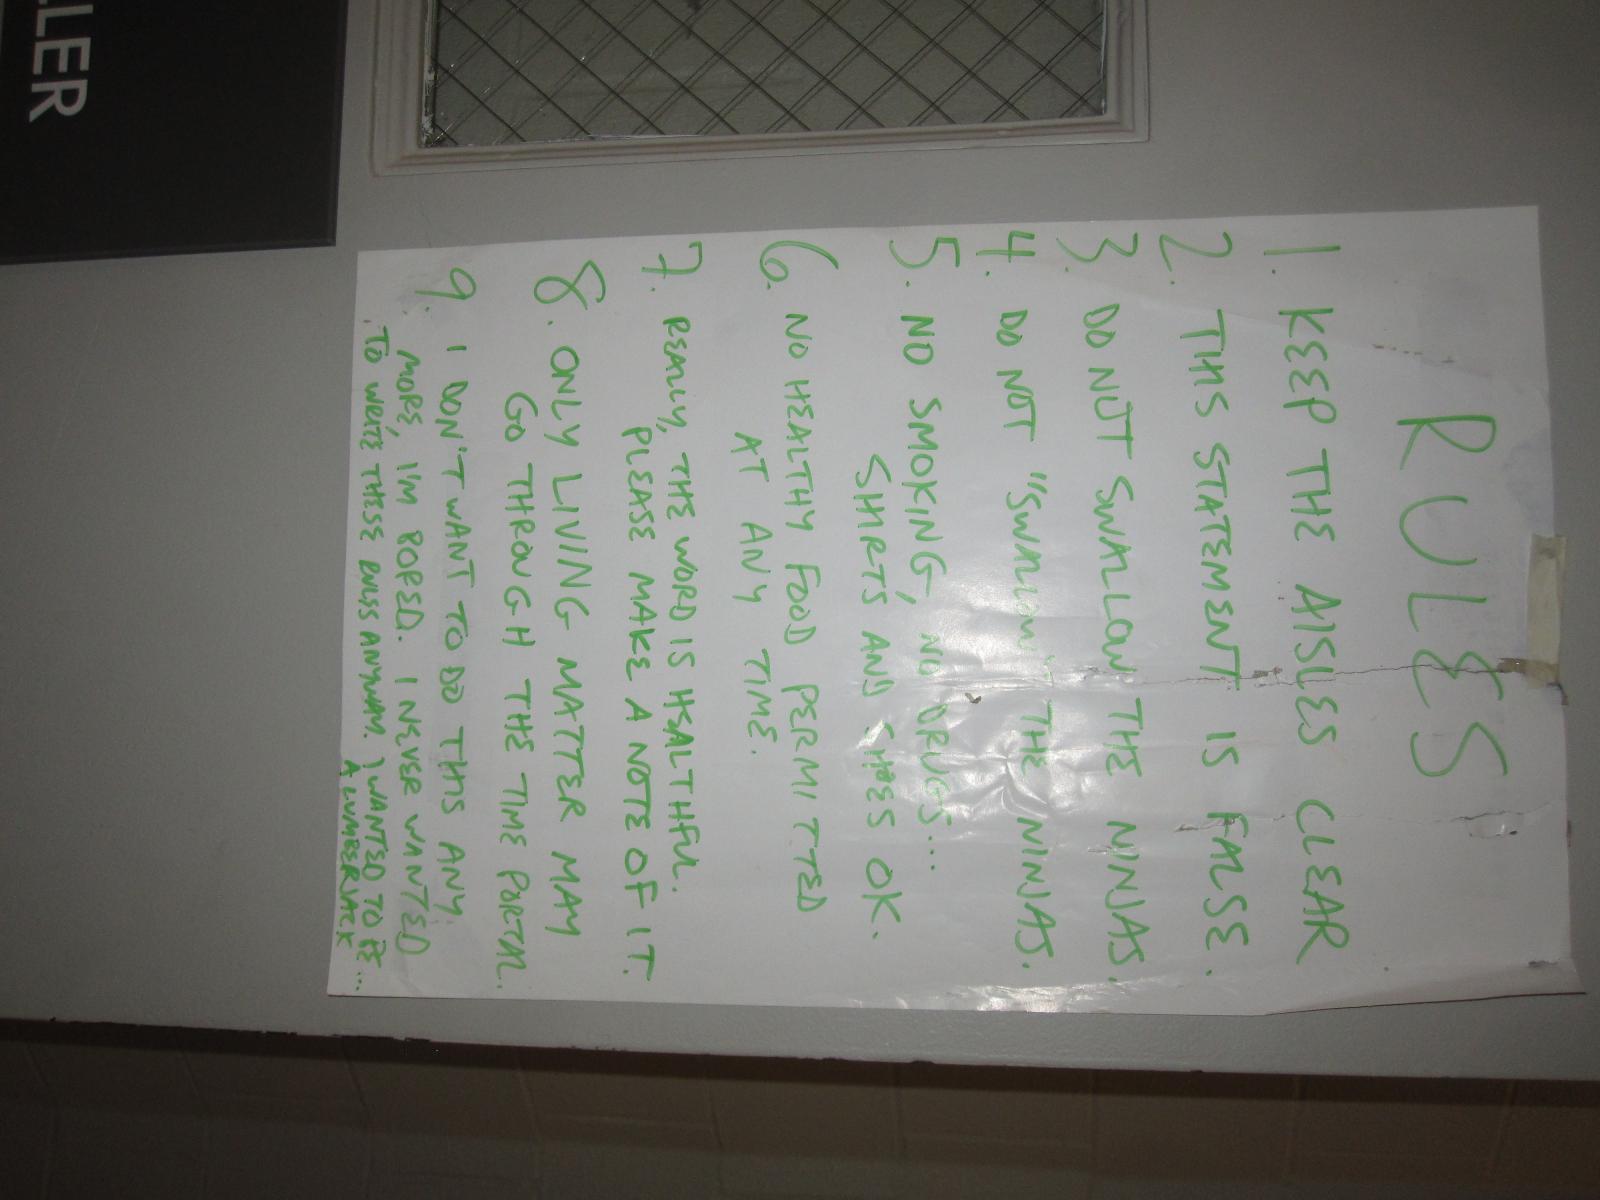 LLER
RULES
1. KEEP THE AISLES CLEAR
2. THIS STATEMENT IS FALSE.
3. DO NOT SWALLOW THE NINJAS.
4. DO NOT "SWALLOW" THE NINJAS.
5. NO SMOKING, NO DRUGS...
SHIRTS AND SHOES OK.
6. NO HEALTHY FOOD PERMITTED
AT ANY TIME.
7. REALLY, THE WORD IS HEALTHFUL.
PLEASE MAKE A NOTE OF IT.
8. ONLY LIVING MATTER MAY
GO THROUGH THE TIME PORTAL.
9. I DON'T WANT TO DO THIS ANY
MORE, I'M BORED. I NEVER WANTED
TO WRITE THESE RULES ANYWAY. I WANTED TO BE...
A LUMBERJACK